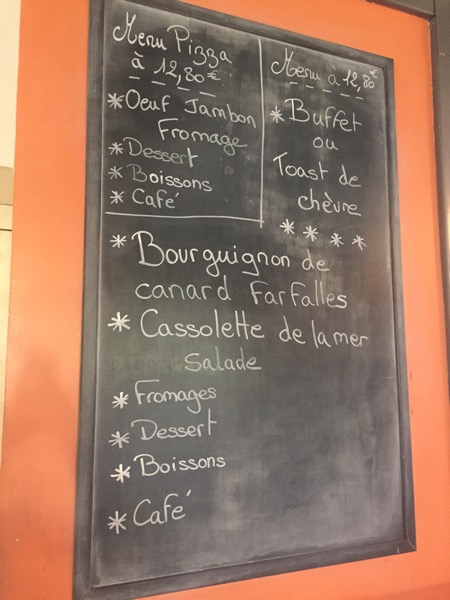 Menu Pizza
à 12,80€
* Oeuf Jambon
Fromage
* Dessert
* Boissons
* Café
Menu à 12,80€
* Buffet
ou
Toast de
chèvre
* * * *
* Bourguignon de
canard Farfalles
* Cassolette de la mer
Salade
* Fromages
* Dessert
* Boissons
* Café